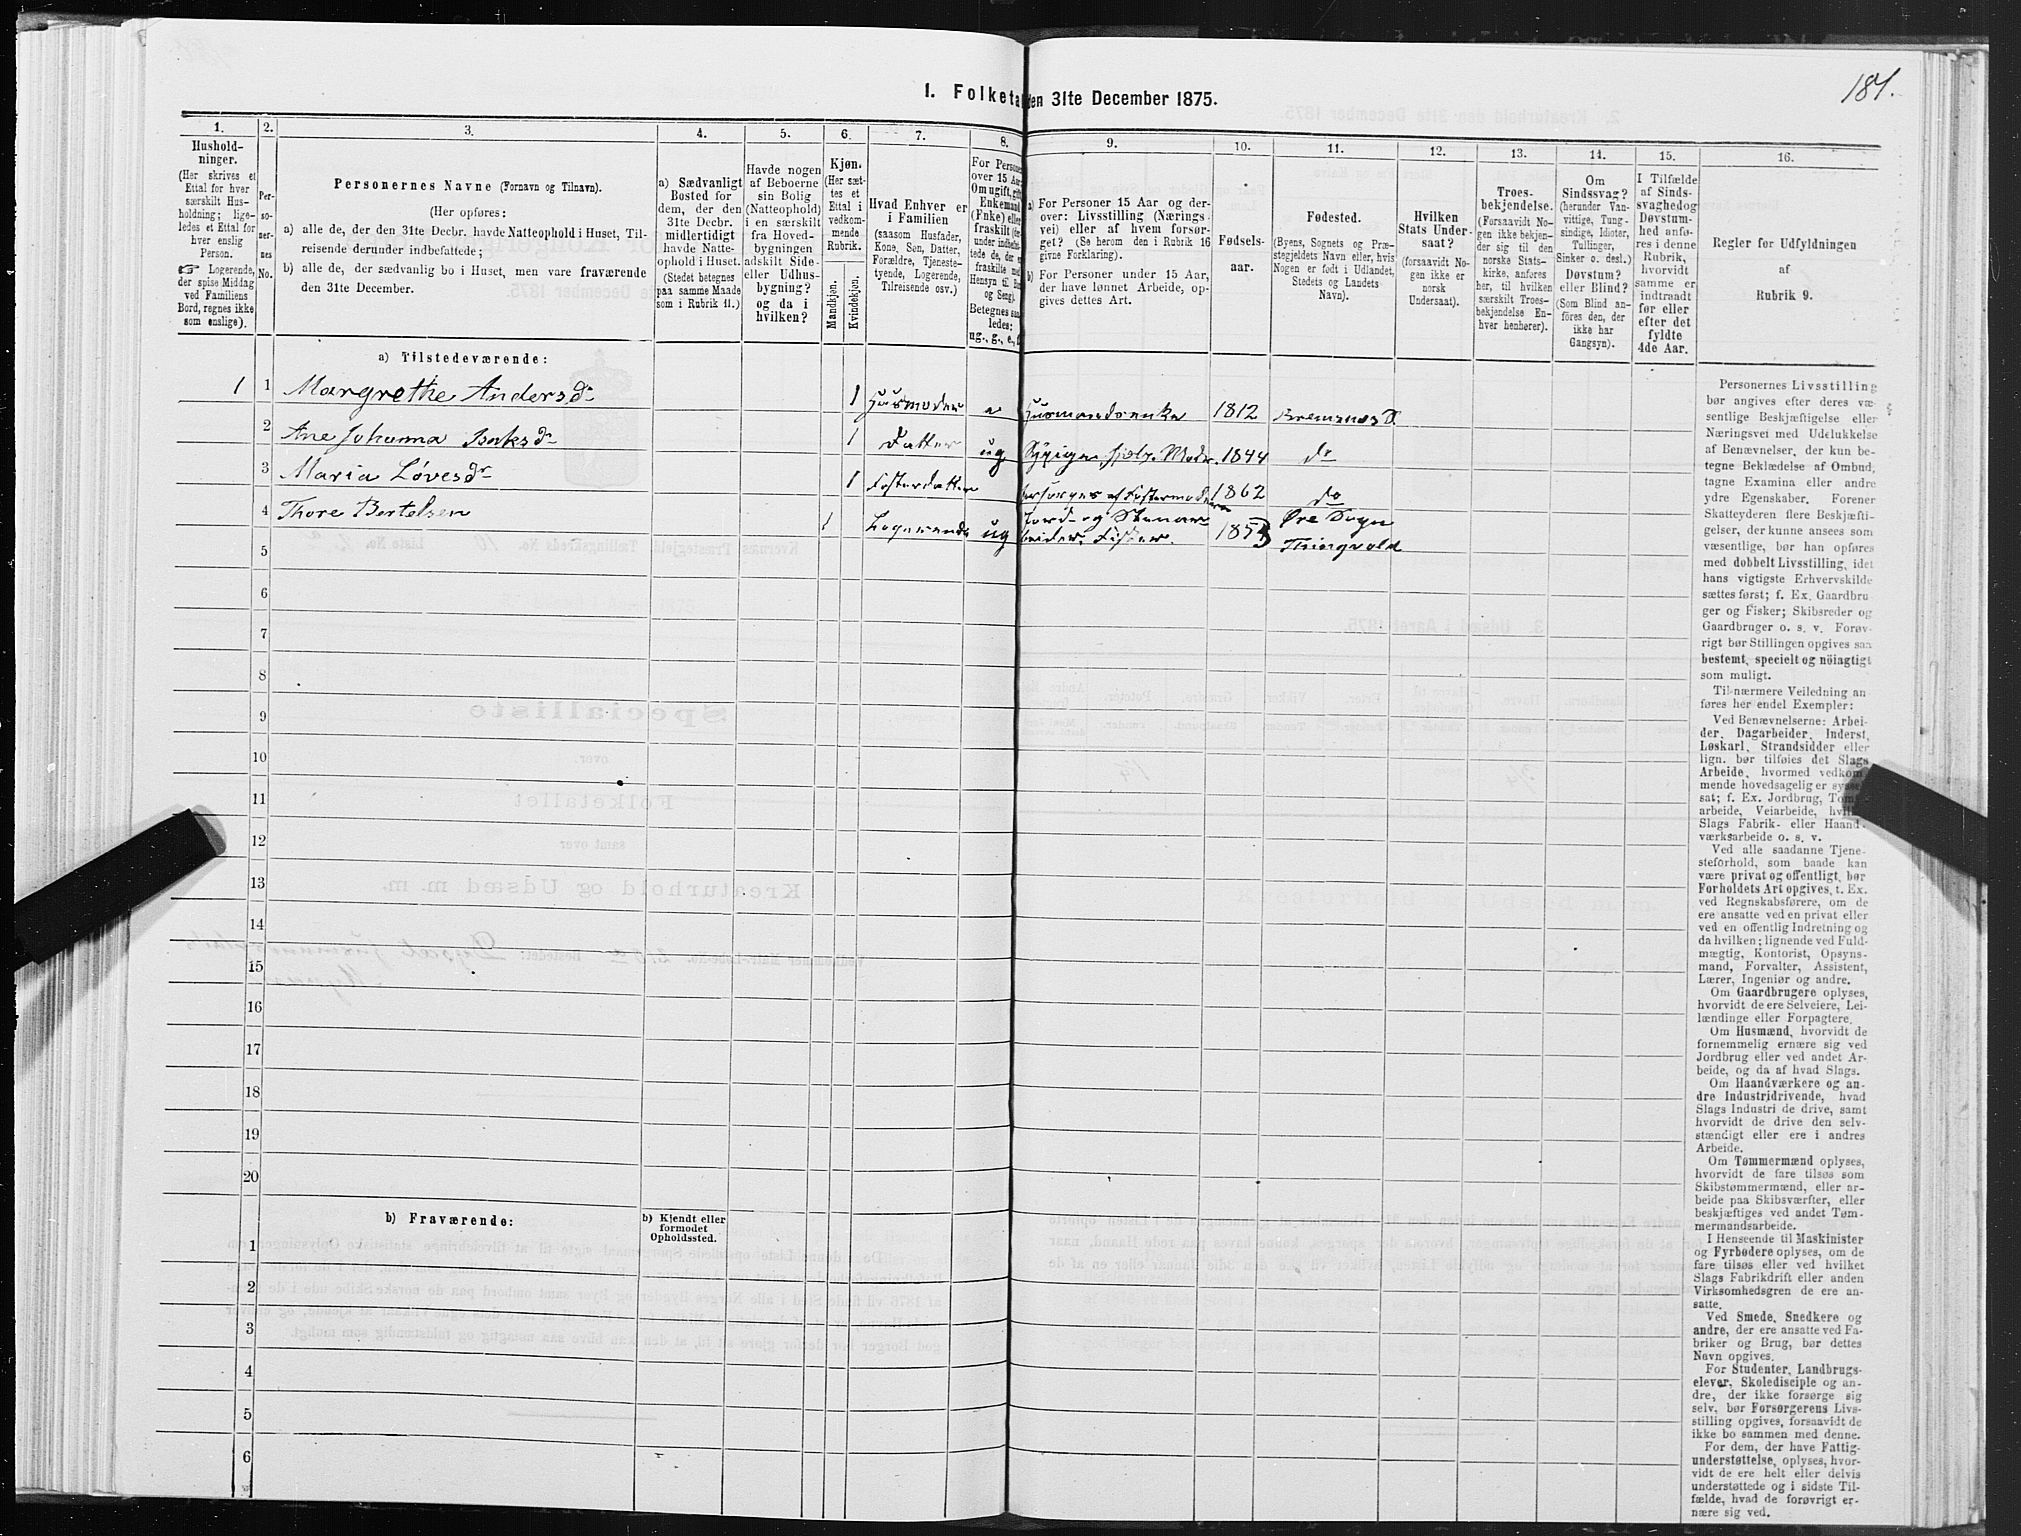 181.
1. Folketal den 31te December 1875.
1. 2. 3. 4. 5. 6. 7. 8. 9. 10. 11. 12. 13. 14. 15. 16.
Hushold-
ninger.
(Her skrives et
Ettal for hver
særskilt Hus-
holdning; lige-
ledes et Ettal for
hver enslig
Person.
☞ Logerende,
der spise Middag
ved Familiens
Bord, regnes ikke
som enslige).
Per-
so-
ner-
nes
No.
Personernes Navne (Fornavn og Tilnavn).
(Her opføres:
a) alle de, der den 31te Decbr. havde Natteophold i Huset, Til-
reisende derunder indbefattede;
b) alle de, der sædvanlig bo i Huset, men vare fraværende
den 31te December.
a) Sædvanligt
Bosted for
dem, der den
31te Decbr.
midlertidigt
havde Natte-
ophold i Huset.
(Stedet betegnes
paa samme Maade
som i Rubrik 11.)
Havde nogen
af Beboerne
sin Bolig
(Natteophold)
i en særskilt
fra Hoved-
bygningen
adskilt Side-
eller Udhus-
bygning?
og da i
hvilken?
Kjøn.
(Her sæt-
tes et
Ettal i
vedkom-
mende
Rubrik.
Mandkjøn.
Kvindekjøn.
Hvad Enhver er
i Familien
(saasom Husfader,
Kone, Søn, Datter,
Forældre, Tjeneste-
tyende, Logerende,
Tilreisende osv.)
For Persone
over 15 Aar
Om ugift, gift
Enkemand
(Enke) eller
fraskilt
Hensyn til
og Seng).
Betegnes saa-
ledes:
ug., g., e.,
a) For Personer 15 Aar og der-
over: Livsstilling (Nærings-
vei) eller af hvem forsør-
get? (Se herom den i Rubrik 16
givne Forklaring).
b) For Personer under 15 Aar,
der have lønnet Arbeide, op-
gives dettes Art.
Fødsels-
aar.
Fødested.
(Byens, Sognets og Præ-
stegjeldets Navn eller, hvis
Nogen er født i Udlandet,
Stedets og Landets
Navn).
Hvilken
Stats Under-
saat?
(forsaavidt No-
gen ikke er
norsk
Undersaat).
Troes-
bekjendelse.
(Forsaavidt No-
gen ikke bekjen-
der sig til den
norske Stats-
kirke, anføres
her, til hvilken
særskilt Troes-
bekjendelse En-
hver henhører).
Om
Sindssvag?
(herunder Van-
vittige, Tung-
sindige, Idioter,
Tullinger,
Sinker o. desl.)
Døvstum?
eller Blind?
(Som Blind an-
føres den, der
ikke har
Gangsyn).
I Tilfælde
af Sinds-
svaghed og
Døvstum-
hed anfø-
res i denne
Rubrik,
hvorvidt
samme er
indtraadt
før eller
efter det
fyldte
4de Aar.
Regler for Udfyldningen
af
Rubrik 9.
a) Tilstedeværende:
1 1 Margrethe Andersdr 1 Husmoder e Husmandsenke 1812 Bremsnes D.
2 Ane Johanna Baksdr 1 Datter ug Moder. 1844 do
3 Maria Løvesdr 1 Fosterdatter forsørges af Fostermoderen 1862 do
4 Thore Bertelsen 1 Logerende ug Jord- og Stenar- 1853 Øre Sogn
5 beider, Fisker. Thingvold
6
7
8
9
10
11
12
13
14
15
16
17
18
19
20
b) Fraværende:
b) Kjendt eller
formodet
Opholdssted.
1
2
3
4
5
6
Personernes Livsstilling
bør angives efter deres væ-
sentlige Beskjæftigelse eller
Næringsvei med Udelukkelse
af Benævnelser, der kun be-
tegne Beklædelse af Ombud,
tagne Examina eller andre
ydre Egenskaber. Forener
Skatteyderen flere Beskjæfti-
gelser, der kunne ansees som
væsentlige, bør han opføres
med dobbelt Livsstilling, idet
hans vigtigste Erhvervskilde
sættes først; f. Ex. Gaardbru
ger og Fisker; Skibsreder og
Gaardbruger o. s. v. Forøv-
rigt bør Stillingen opgives saa
bestemt, specielt og nöiagtigt
som muligt.
Til nærmere Veiledning an
føres her endel Exempler:
Ved Benævnelserne: Arbei-
der, Dagarbeider, Inderst,
Løskarl, Strandsidder eller
lign. bør tilføies det Slags
Arbeide, hvormed vedkom-
mende hovedsagelig er syssel
sat; f. Ex. Jordbrug, Tom
arbeide, Veiarbeide, hvilke
Slags Fabrik- eller Haand-
værksarbeide o. s. v.
Ved alle saadanne Tjene-
steforhold, som baade kan
være privat og offentligt, bør
Forholdets Art opgives, t. Ex.
ved Regnskabsførere, om de
ere ansatte ved en privat eller
ved en offentlig Indretning og
da hvilken; lignende ved Fuld-
mægtig, Kontorist, Opsyns-
mand, Forvalter, Assistent,
Lærer, Ingeniør og andre.
Om Gaardbrugere oplyses,
hvorvidt de ere Selveiere, Lei-
lændinge eller Forpagtere.
Om Husmænd, hvorvidt de
fornemmelig ernære sig ved
Jordbrug eller ved andet Ar-
beide, og da af hvad Slags.
Om Haandværkere og an-
dre Industridrivende, hvad
Slags Industri de drive, samt
hvorvidt de drive den selv-
stændigt eller ere i andres
Arbeide.
Om Tømmermænd oplyses,
hvorvidt de fare tilsøs som
Skibstømmermænd, eller ar-
beide paa Skibsværfter, eller
beskjæftiges ved andet Tøm-
mermandsarbeide.
I Henseende til Maskinister
og Fyrbødere oplyses, om de
fare tilsøs eller ved hvilket
Slags Fabrikdrift eller anden
Virksomhedsgren de ere an-
satte.
Ved Smede, Snedkere og
andre, der ere ansatte ved Fa-
briker og Brug, bør dettes
Navn opgives.
For Studenter, Landbrugs-
elever, Skoledisciple og an-
dre, der ikke forsørge sig
selv, bør Forsørgerens Livs-
stilling opgives, forsaavidt de
ikke bo sammen med denne.
For dem, der have Fattig-
understøttelse, oplyses, hvor-
vidt de ere helt eller delvis
understøttede og i sidste Til-
fælde, hvad de forøvrigt er-
nære sig ved.